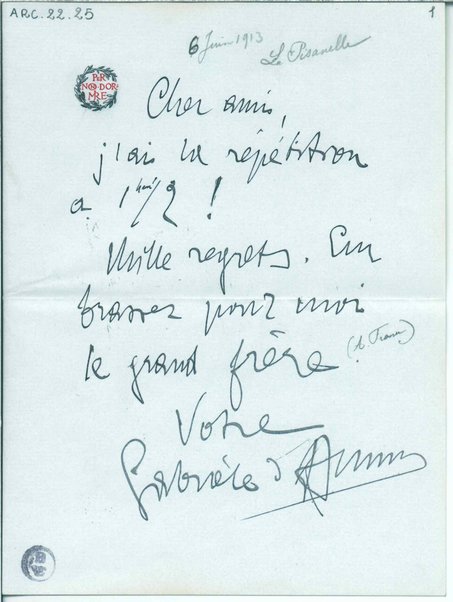 ARC.22.25
1
6 Juin 1913 La Pisanelle
PER
NON DOR
MIRE
Cher ami,
j'ai la répétition
a 1 heure 1/2 !
Mille regrets. Em
brassez pour moi
le grand frère
(A. France)
Votre
Gabriele d'Annunzio